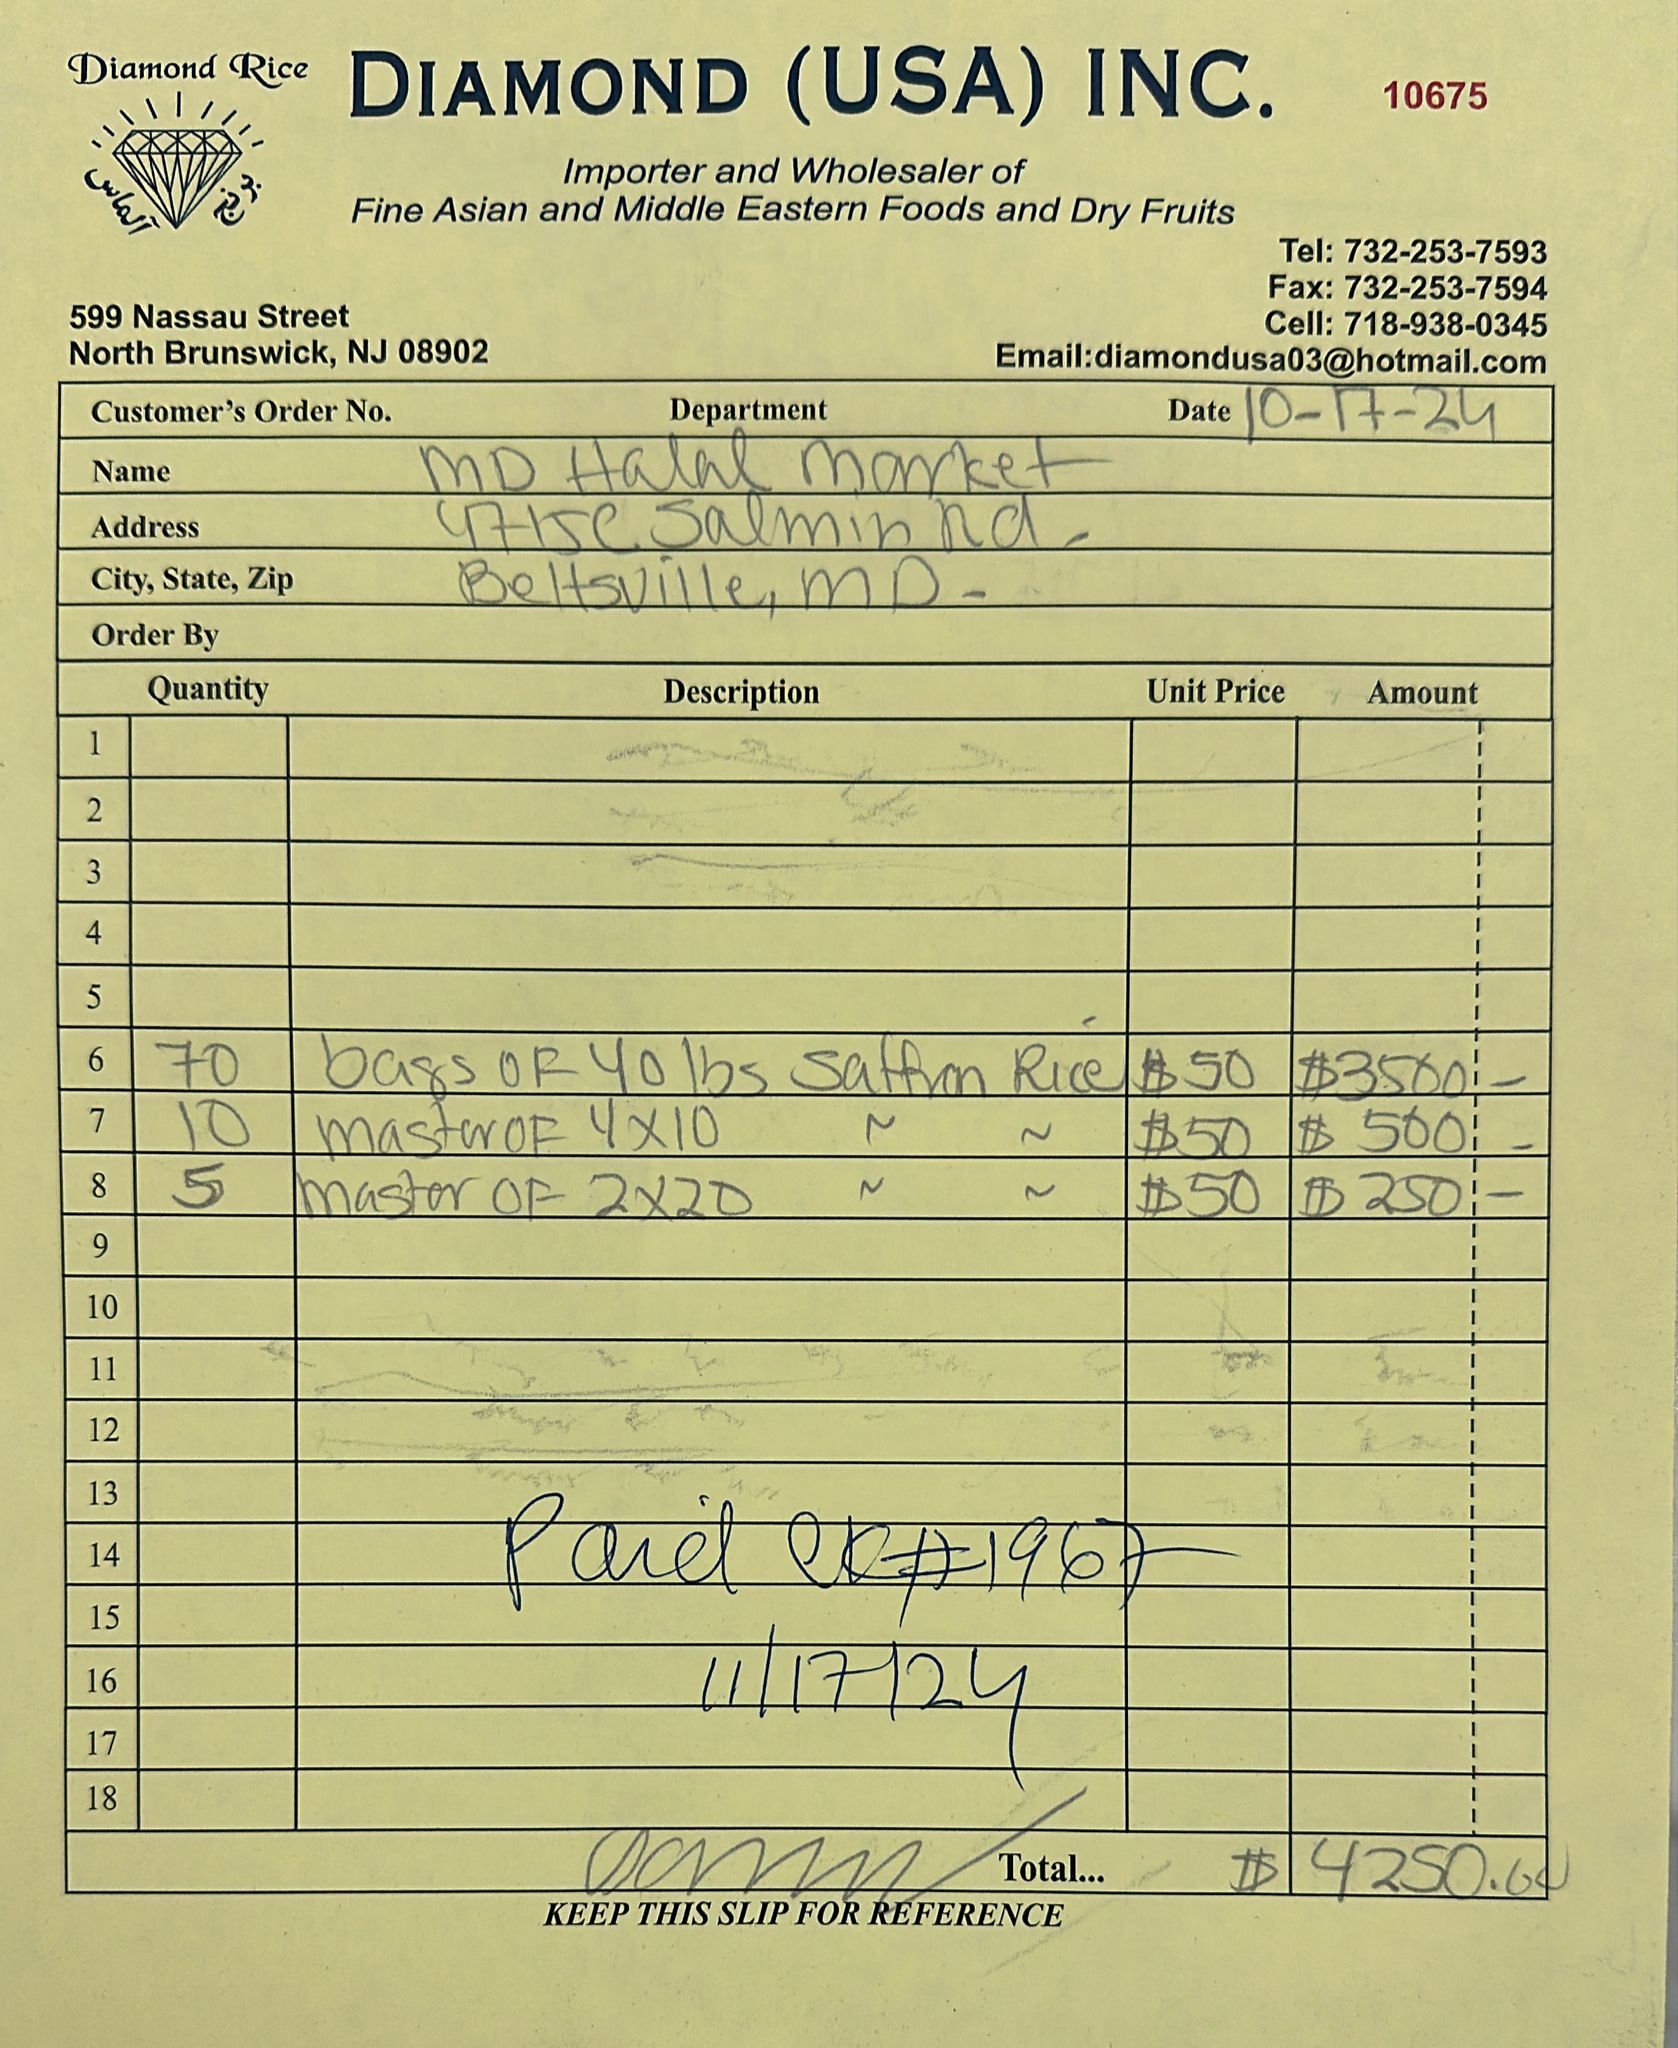 Diamond Rice
DIAMOND (USA) INC.
10675
الماس
Importer and Wholesaler of
Fine Asian and Middle Eastern Foods and Dry Fruits
Tel: 732-253-7593
Fax: 732-253-7594
Cell: 718-938-0345
Email:diamondusa03@hotmail.com
599 Nassau Street
North Brunswick, NJ 08902
Customer's Order No. Department Date 10-17-24
Name MD Halal Market
Address 4715C Salmin Rd -
City, State, Zip Beltsville, MD -
Order By
Quantity Description Unit Price Amount
1
2
3
4
5
6 70 bags OF 40 lbs Saffron Rice $50 $3500 -
7 10 master OF 4X10 ~ ~ $50 $ 500 -
8 5 master OF 2X20 ~ ~ $50 $ 250 -
9
10
11
12
13
14 Paid CK#1967
15
16 11/17/24
17
18
Total... $ 4250.00
KEEP THIS SLIP FOR REFERENCE